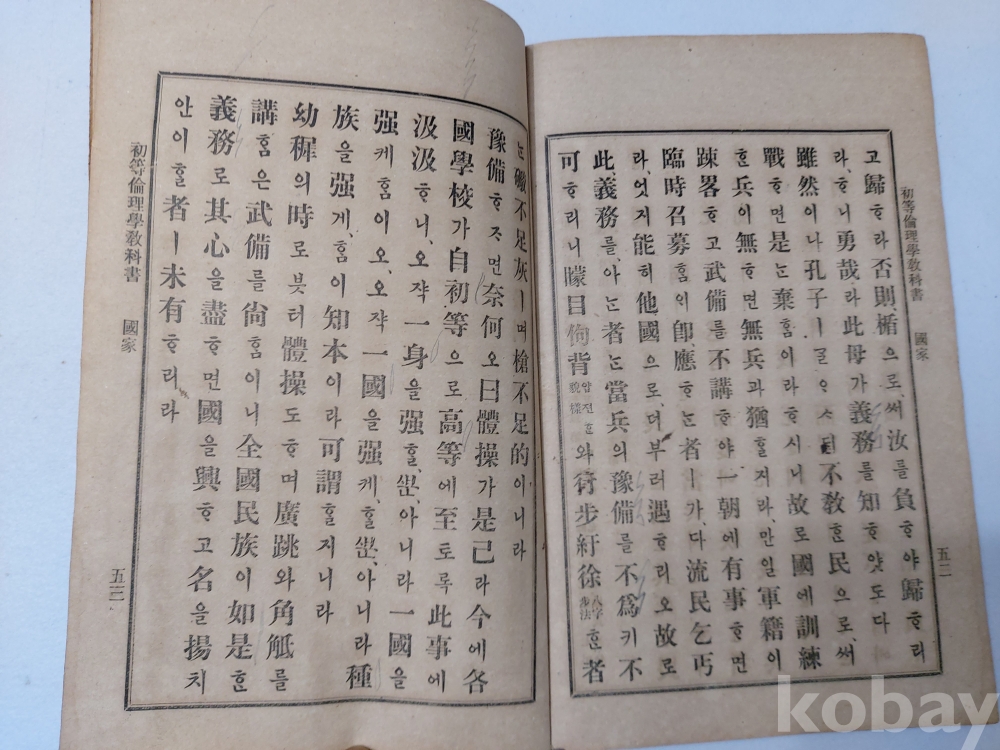 初等倫理學敎科書 國家 五二
고歸ᄒᆞ라否則、楯으로、써汝를負ᄒᆞ야歸ᄒᆞ리
라、ᄒᆞ니勇哉라此母가義務를知ᄒᆞ얏도다
雖然이나孔子ㅣᄀᆞᆯᄋᆞᄉᆞᄃᆡ不敎ᄒᆞᆫ民으로、써
戰ᄒᆞ면是ᄂᆞᆫ棄홈이라ᄒᆞ시니故로國에訓練
ᄒᆞᆫ兵이無ᄒᆞ면無兵과猶ᄒᆞᆯ지라、만일軍籍이
踈畧ᄒᆞ고武備를不講ᄒᆞ야一朝에有事ᄒᆞ면
臨時召募홈의卽應ᄒᆞᄂᆞᆫ者ㅣ가、다流民乞丐
라、엇지能히他國으로、더부러遇ᄒᆞ리오故로
此、義務를、아ᄂᆞᆫ者ᄂᆞᆫ當兵의豫備를不爲키不
可ᄒᆞ리니矇目傴背암젼ᄒᆞᆫ貌樣와彳步紆徐八字步法ᄒᆞᆫ者
ᄂᆞᆫ礮不足灰ㅣ며槍不足的이니라
豫備ᄒᆞᄌᆞ면奈何오曰體操가是己라今에各
國學校가自初等으로高等에至토록此事에
汲汲ᄒᆞ니、오쟉一身을强ᄒᆞᆯ、ᄲᅮᆫ、아니라一國을
强케홈이오、오쟉一國을强케、ᄒᆞᆯᄲᅮᆫ、아니라種
族을强게、홈이知本이라可謂ᄒᆞᆯ지니라
幼穉의時로븟터體操도ᄒᆞ며廣跳와角觝를
講홈은武備를尙홈이니全國民族이如是ᄒᆞᆫ
義務로其心을盡ᄒᆞ면國을興ᄒᆞ고名을揚치
안이ᄒᆞᆯ者ㅣ未有ᄒᆞ리라
初等倫理學敎科書 國家 五三
kobay